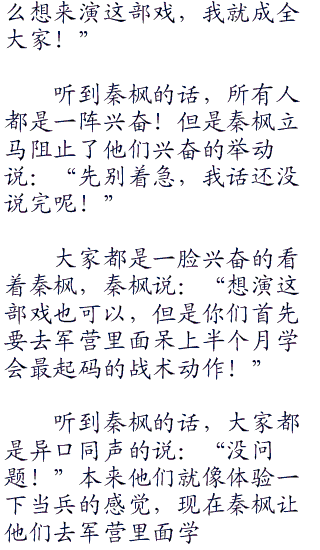 么想来演这部戏，我就成全
大家！”
听到秦枫的话，所有人
都是一阵兴奋！但是秦枫立
马阻止了他们兴奋的举动
说：“先别着急，我话还没
说完呢！”
大家都是一脸兴奋的看
着秦枫，秦枫说：“想演这
部戏也可以，但是你们首先
要去军营里面呆上半个月学
会最起码的战术动作！”
听到秦枫的话，大家都
是异口同声的说：“没问
题！”本来他们就像体验一
下当兵的感觉，现在秦枫让
他们去军营里面学